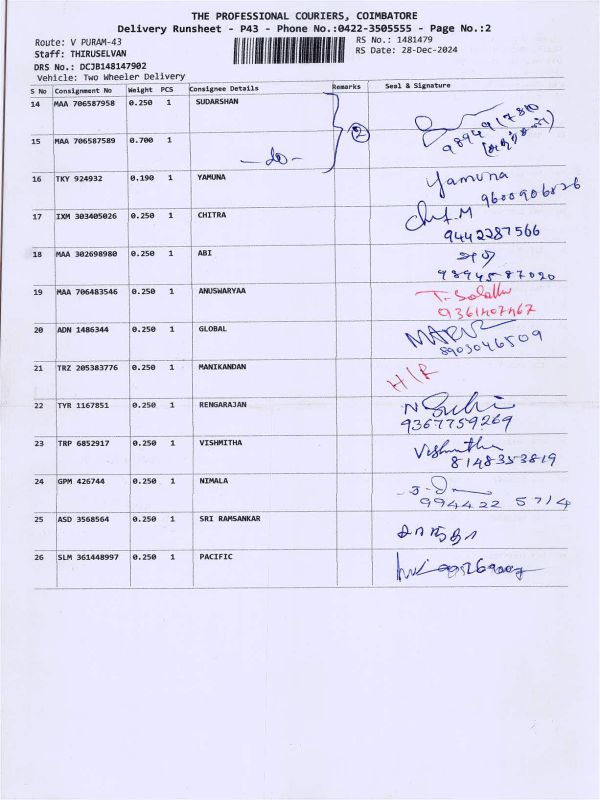 THE PROFESSIONAL COURIERS, COIMBATORE
Delivery Runsheet - P43 - Phone No.:0422-3505555 - Page No.:2
Route: V PURAM-43
RS No.: 1481479
Staff: THIRUSELVAN
RS Date: 28-Dec-2024
DRS No.: DCJB148147902
Vehicle: Two Wheeler Delivery
S No Consignment No Weight PCS Consignee Details Remarks Seal & Signature
14 MAA 706587958 0.250 1 SUDARSHAN
2
9894917810
15 MAA 706587589 0.700 1
-do-
16 TKY 924932 0.190 1 YAMUNA Yamuna
9600906826
17 IXM 303405026 0.250 1 CHITRA
9442287566
18 MAA 302698980 0.250 1 ABI அபி
9894587020
19 MAA 706483546 0.250 1 ANUSWARYAA
9361407467
20 ADN 1486344 0.250 1 GLOBAL
8903046509
21 TRZ 205383776 0.250 1 MANIKANDAN H/R
22 TYR 1167851 0.250 1 RENGARAJAN
9367759269
23 TRP 6852917 0.250 1 VISHMITHA Vishmitha
8148353819
24 GPM 426744 0.250 1 NIMALA
994422 5714
25 ASD 3568564 0.250 1 SRI RAMSANKAR
26 SLM 361448997 0.250 1 PACIFIC